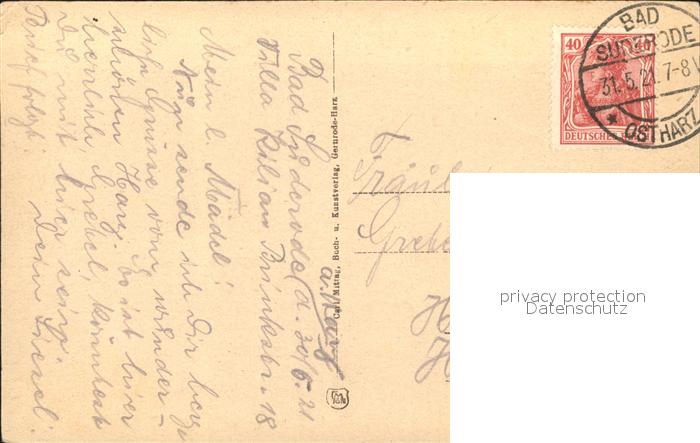 Bad Suderode, d. 30/5. 21
a. Harz
Villa Kilian Brinkstr. 18
Mein l. Mädel!
Nun sende ich Dir herz
lich Grüsse vom wunder-
schönen Harz. Es ist hier
herrlich Gretel, könntest
Du mit hier sein.
Dein Liesel.
Brief folgt
Carl Mittag, Buch- u. Kunstverlag, Gernrode-Harz
40
DEUTSCHES
BAD
SUDERODE
31.5.21. 7-8V
* OSTHARZ
Fräul
Grete
H
privacy protection
Datenschutz